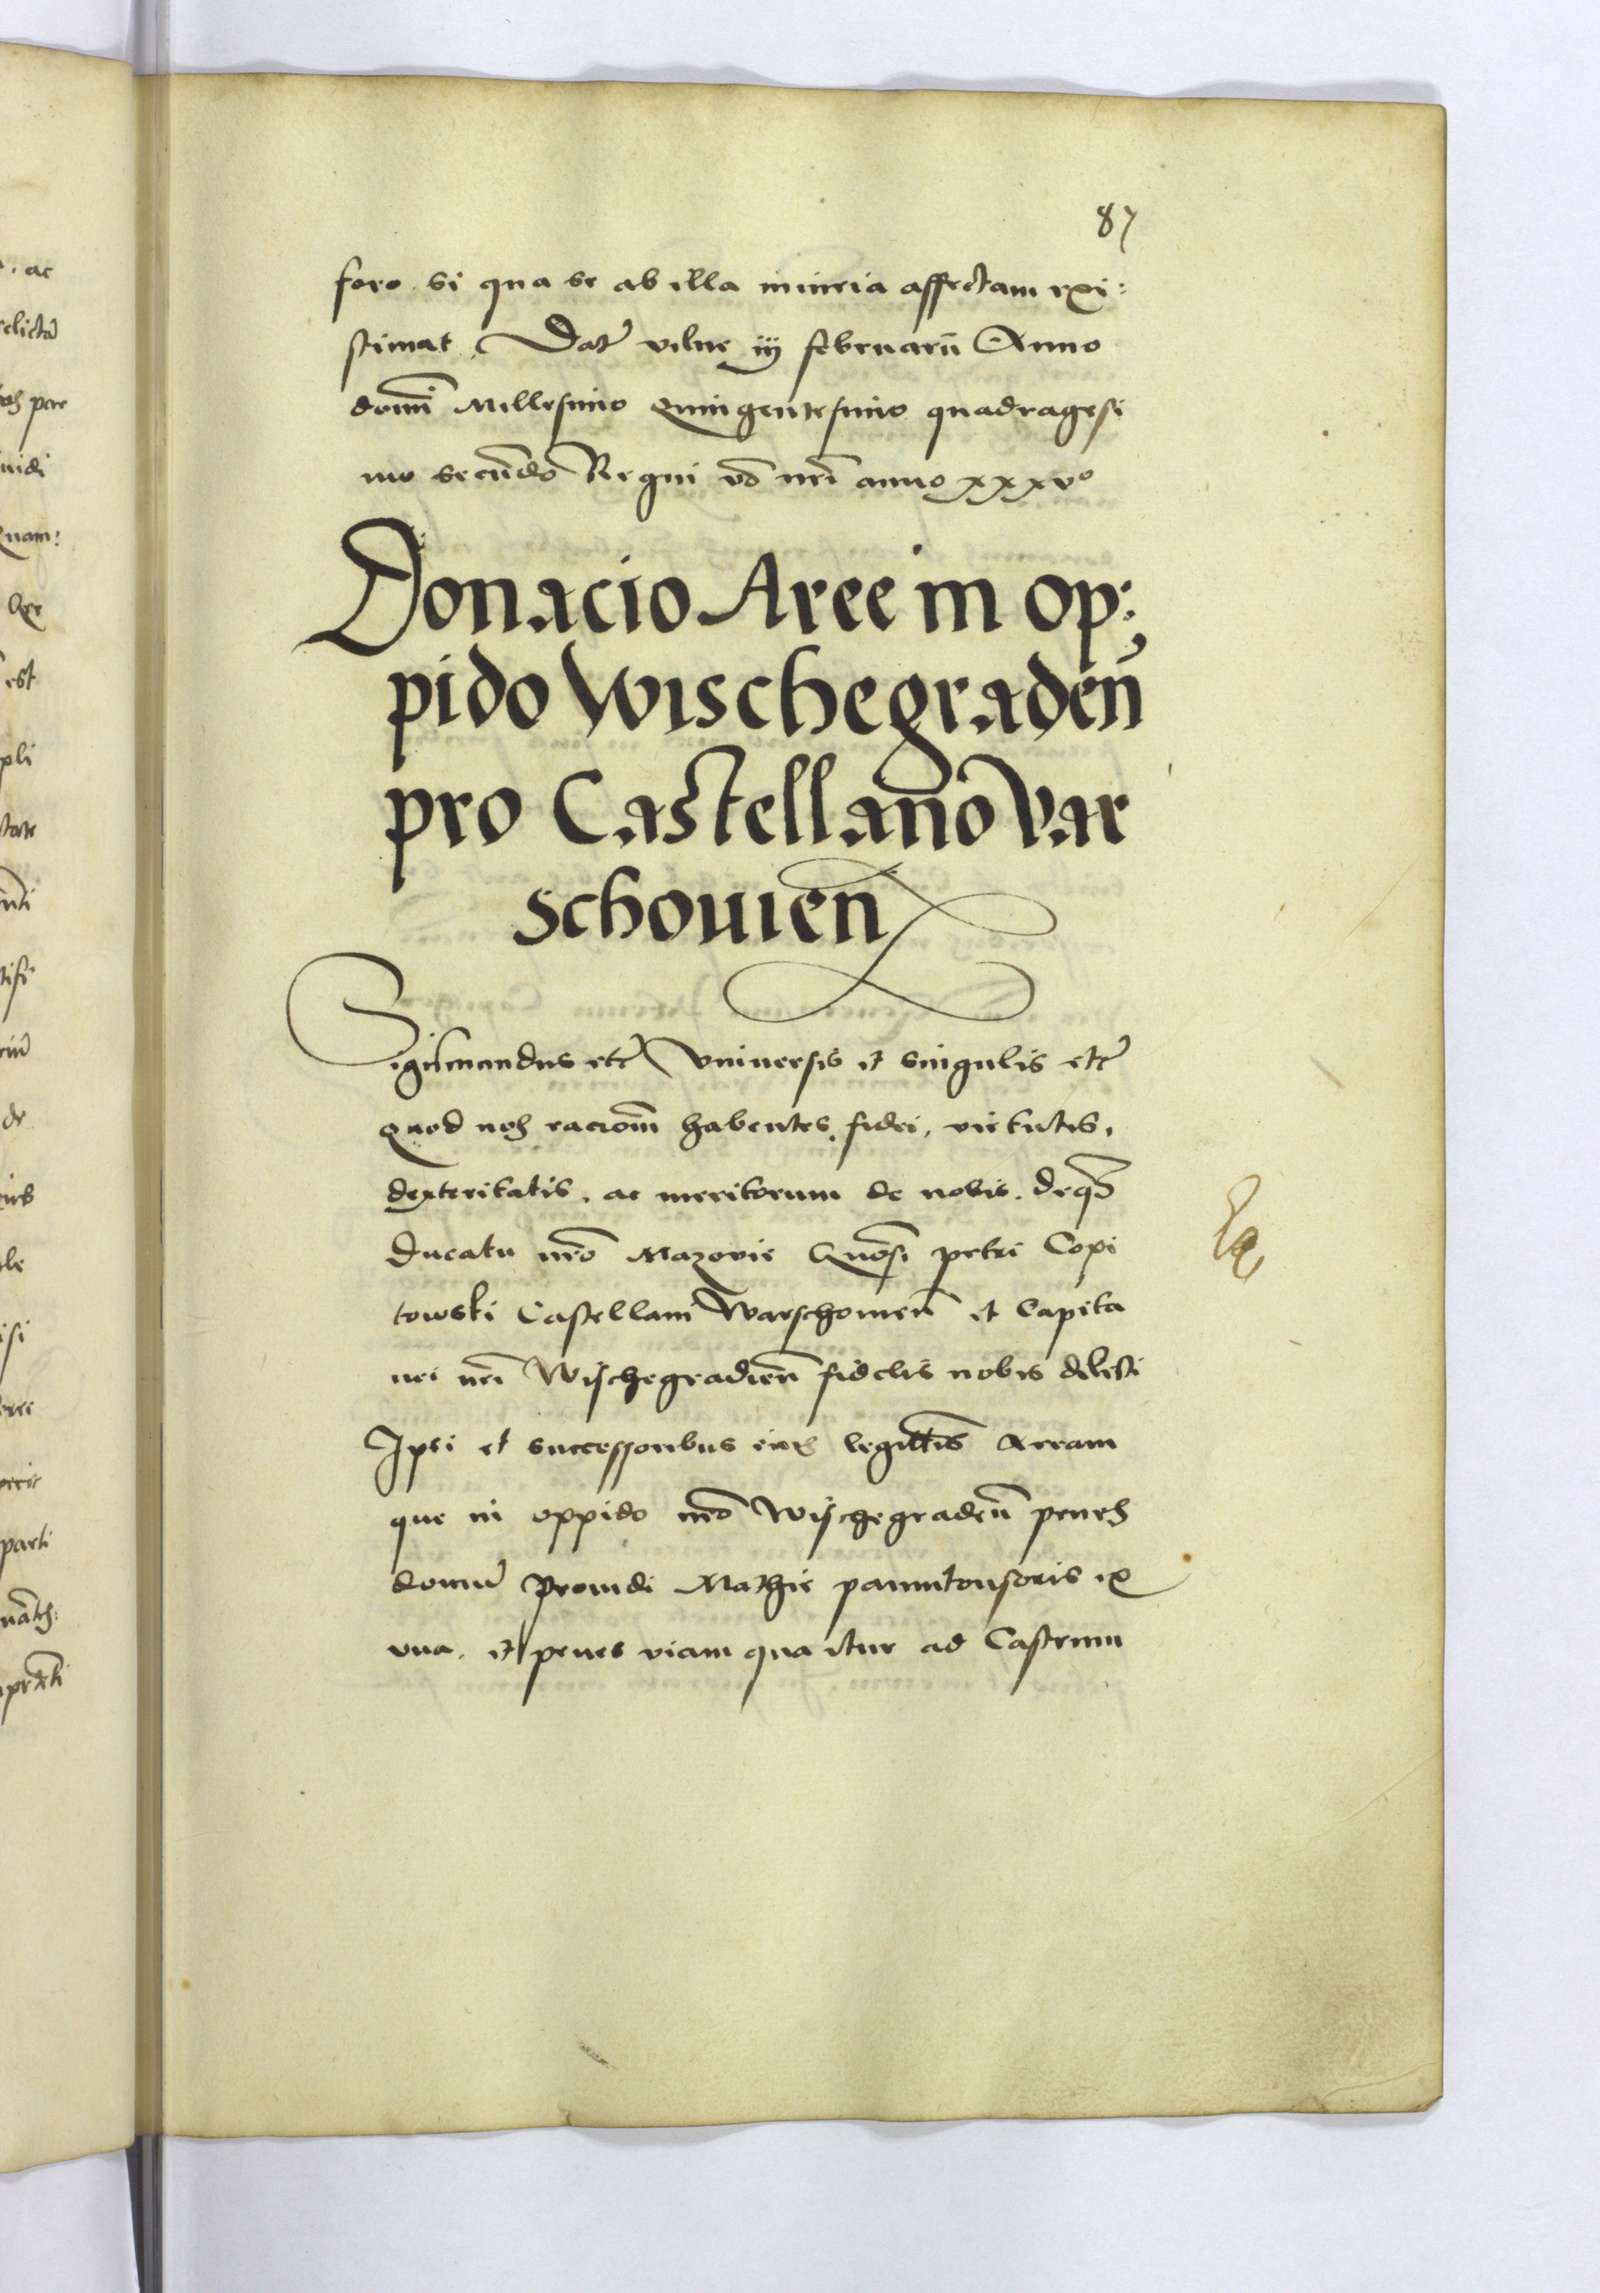 87
foro si qua se ab illa iniuria affectam exi:
stimat. Dat vilne iij februarii Anno
domi Millesimo Quingentesimo quadragesi
mo secundo Regni vo nri anno xxxvo
Donacio Aree in op:
pido Wischegraden
pro Castellano Var
schouien
Sigismundus etc Vniuersis et singulis etc
quod nos racionem habentes fidei, virtutis,
dexteritatis, ac meritorum de nobis, deq3
Ducatu nro Mazovie Gnosi petri Copi
towski Castellani Warschouien et Capita
nei nri Wischegradien fidelis nobis dilecti
Ipsi et successoribus eius legittis Aream
que in oppido nro Wischegraden penes
domu Prouidi Mathie pannitonsoris ex
vna, et penes viam qua itur ad Castrum